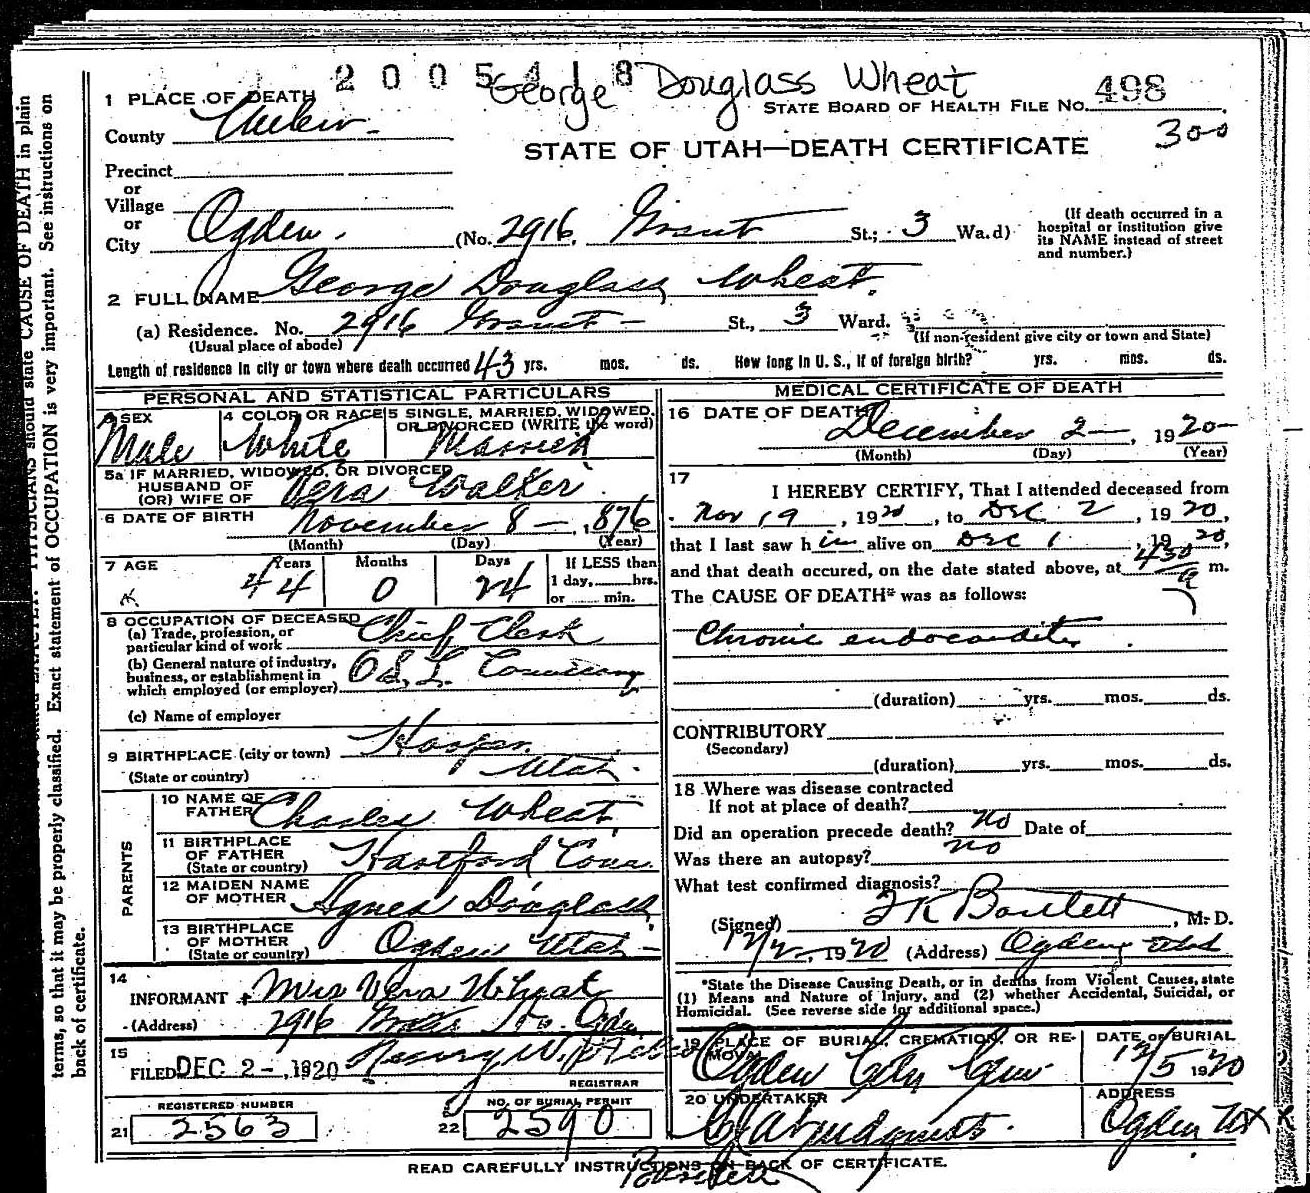 2005418 George Douglass Wheat
1 PLACE OF DEATH STATE BOARD OF HEALTH FILE No. 498
County Weber 300
STATE OF UTAH—DEATH CERTIFICATE
Precinct
or
Village
or
City Ogden. (No. 2916 Grant St.; 3 Wa.d)
(If death occurred in a hospital or institution give its NAME instead of street and number.)
2 FULL NAME George Douglass Wheat.
(a) Residence. No. 2916 Grant St., 3 Ward.
(Usual place of abode) (If non-resident give city or town and State)
Length of residence in city or town where death occurred 43 yrs. mos. ds. How long in U. S., if of foreign birth? yrs. mos. ds.
PERSONAL AND STATISTICAL PARTICULARS
SEX Male
4 COLOR OR RACE White
5 SINGLE, MARRIED, WIDOWED, OR DIVORCED (WRITE the word) Married
5a IF MARRIED, WIDOWED, OR DIVORCED
HUSBAND OF
(OR) WIFE OF Vera Walker
6 DATE OF BIRTH November 8 - , 1876
(Month) (Day) (Year)
7 AGE Years 44 Months 0 Days 24 If LESS than
1 day, hrs.
or min.
8 OCCUPATION OF DECEASED
(a) Trade, profession, or particular kind of work Chief Clerk
(b) General nature of industry, business, or establishment in which employed (or employer) O S. L. Company
(c) Name of employer
9 BIRTHPLACE (city or town) Hooper
(State or country) Utah.
PARENTS
10 NAME OF FATHER Charles Wheat
11 BIRTHPLACE OF FATHER (State or country) Hartford Conn.
12 MAIDEN NAME OF MOTHER Agnes Douglass
13 BIRTHPLACE OF MOTHER (State or country) Ogden Utah
14
INFORMANT Mrs Vera Wheat
(Address) 2916 Ogden
15
FILED DEC 2-, 1920 Henry W.
REGISTRAR
REGISTERED NUMBER
21 2563
NO. OF BURIAL PERMIT
22 2590
MEDICAL CERTIFICATE OF DEATH
16 DATE OF DEATH December 2 , 1920
(Month) (Day) (Year)
17
I HEREBY CERTIFY, That I attended deceased from
Nov 19, 1920, to Dec 2, 1920,
that I last saw him alive on Dec 1, 1920,
and that death occured, on the date stated above, at 4 30 a m.
The CAUSE OF DEATH* was as follows:
Chronic endocarditis.
(duration) yrs. mos. ds.
CONTRIBUTORY
(Secondary)
(duration) yrs. mos. ds.
18 Where was disease contracted
If not at place of death?
Did an operation precede death? No Date of
Was there an autopsy? no
What test confirmed diagnosis?
(Signed) F K Bartlett, M. D.
12/2, 1920 (Address) Ogden, Utah
*State the Disease Causing Death, or in deaths from Violent Causes, state
(1) Means and Nature of Injury, and (2) whether Accidental, Suicidal, or
Homicidal. (See reverse side for additional space.)
19 PLACE OF BURIAL, CREMATION, OR REMOVAL Ogden City Cem
DATE OF BURIAL 12/5 1920
20 UNDERTAKER
ADDRESS Ogden
READ CAREFULLY INSTRUCTIONS ON BACK OF CERTIFICATE.
PHYSICIANS should state CAUSE OF DEATH in plain
terms, so that it may be properly classified. Exact statement of OCCUPATION is very important. See instructions on
back of certificate.